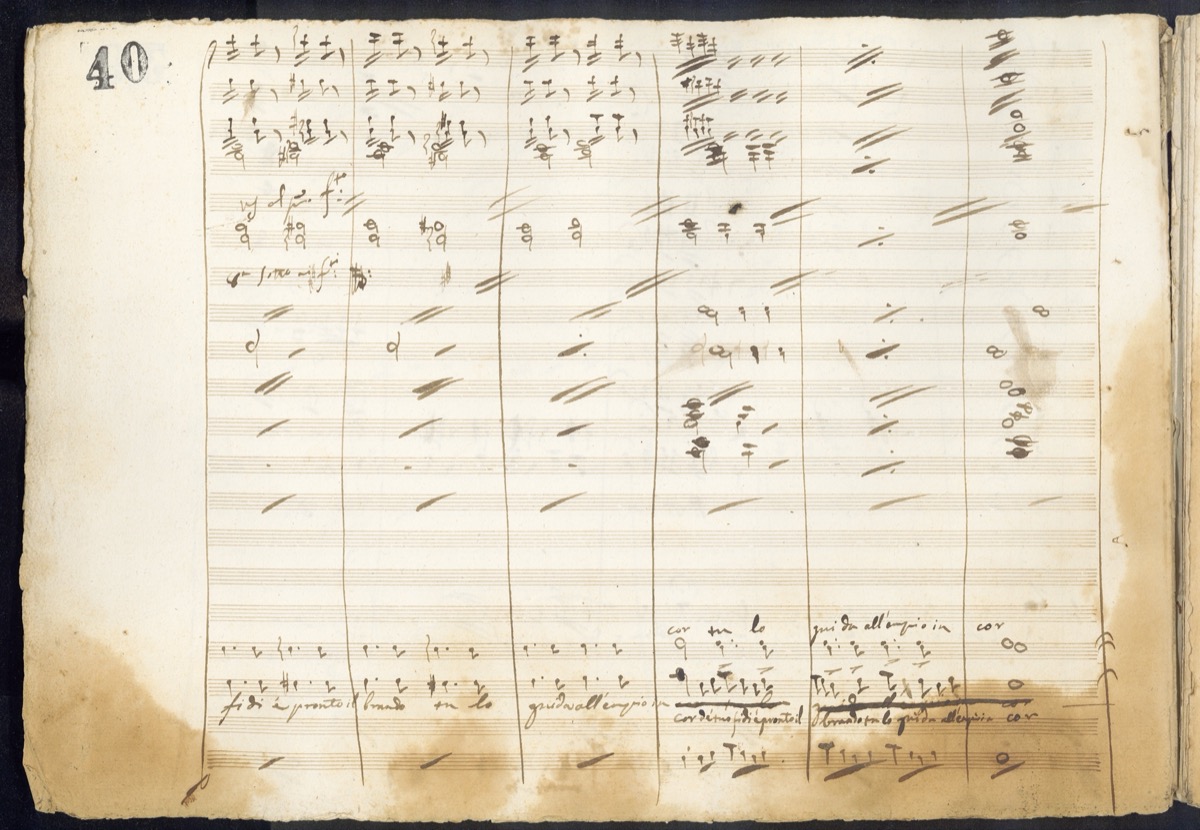 40
cor tu lo guida all'empio in cor
fidi è pronto il brando tu lo guida all'empio in
cor de tuoi fidi è pronto il brando tu lo guida all'empio in cor